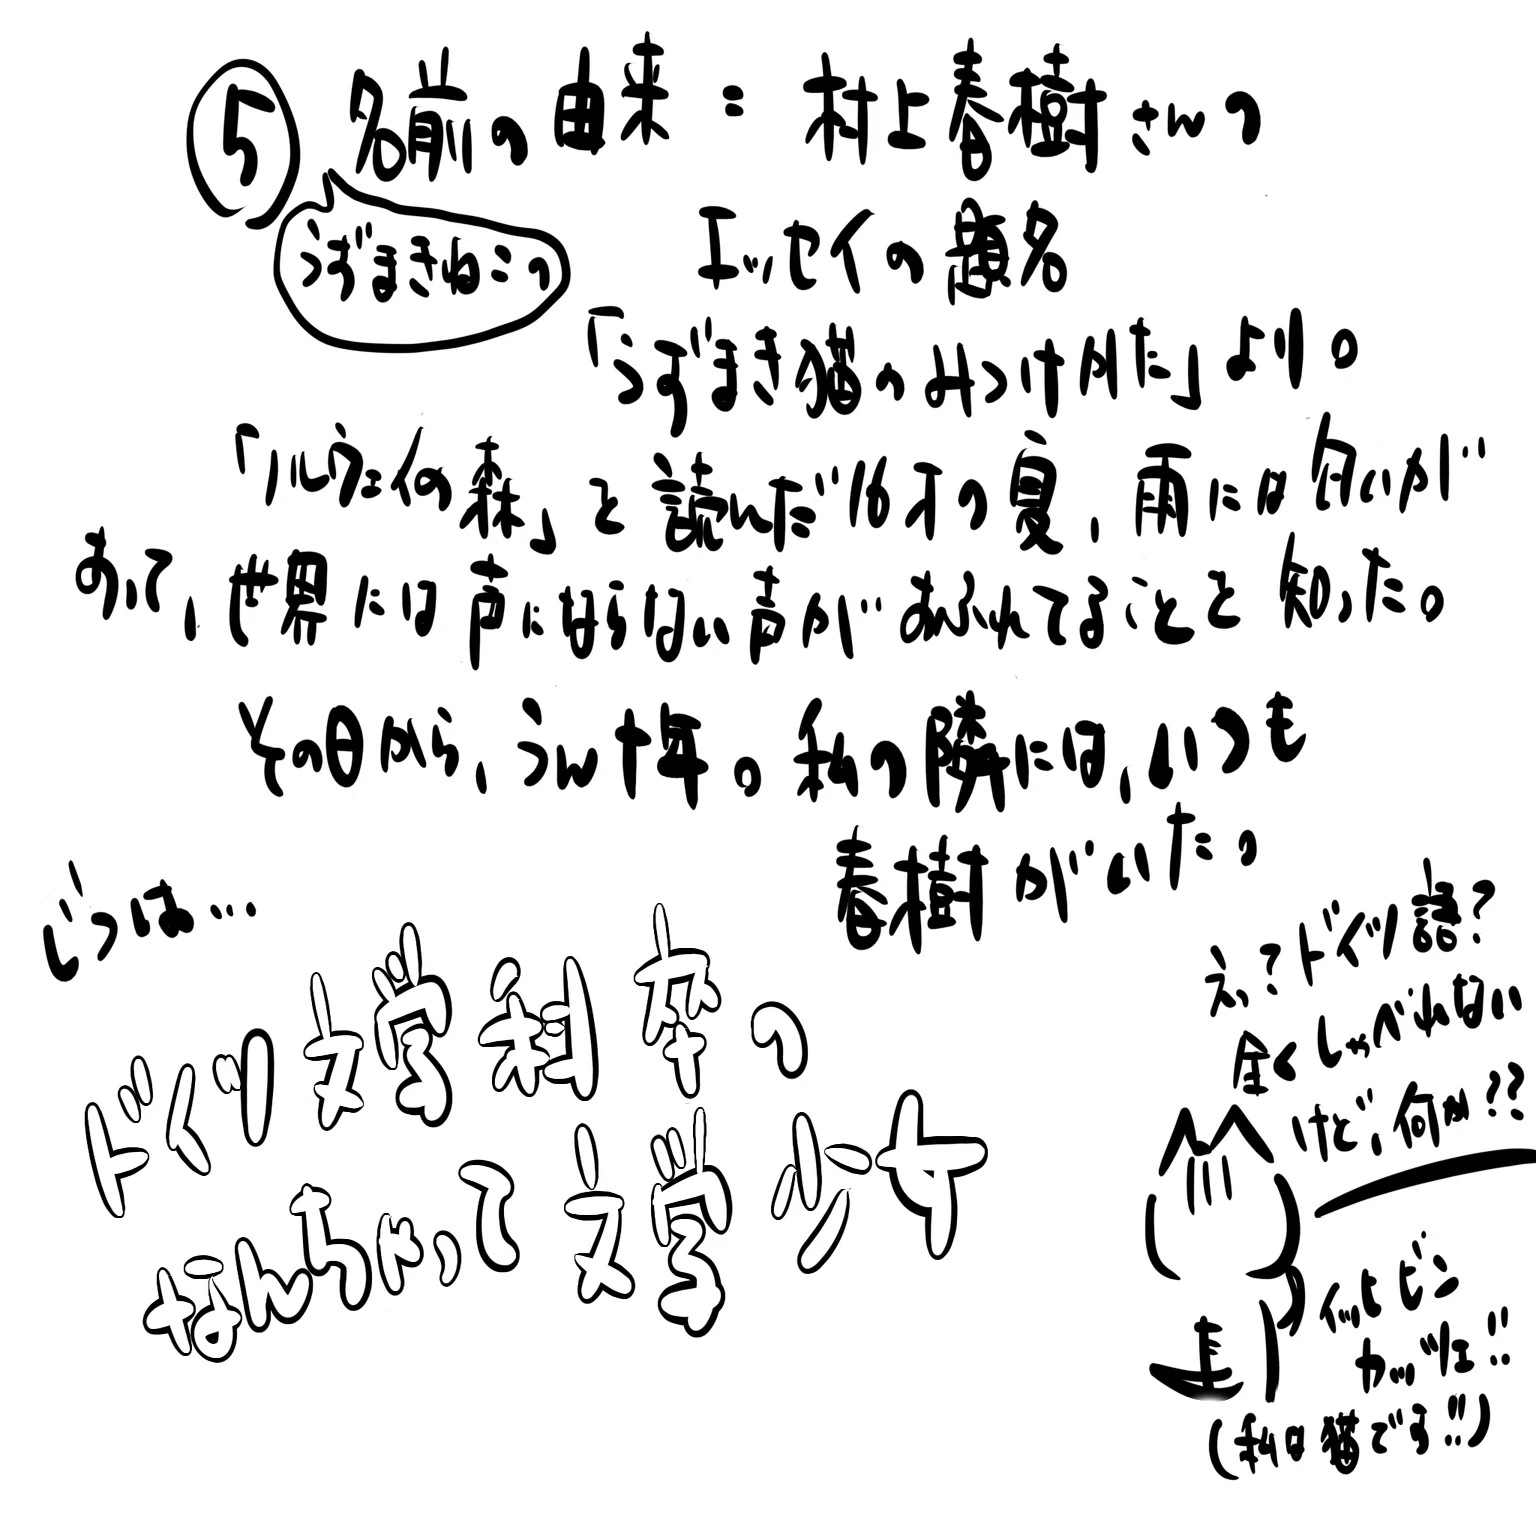 ⑤ 名前の由来：村上春樹さんの
うずまきねこの
エッセイの題名
「うずまき猫のみつけかた」より。
「ノルウェイの森」と読んだ16才の夏、雨には匂いが
あって、世界には声にならない声があふれてることと知った。
その日から、うん十年。私の隣には、いつも
春樹がいた。
じつは…
ドイツ文学科卒の
なんちゃって文学少女
えっ？ドイツ語？
全くしゃべれない
けど、何か？？
イッヒビン
カッツェ!!
（私は猫です!!）